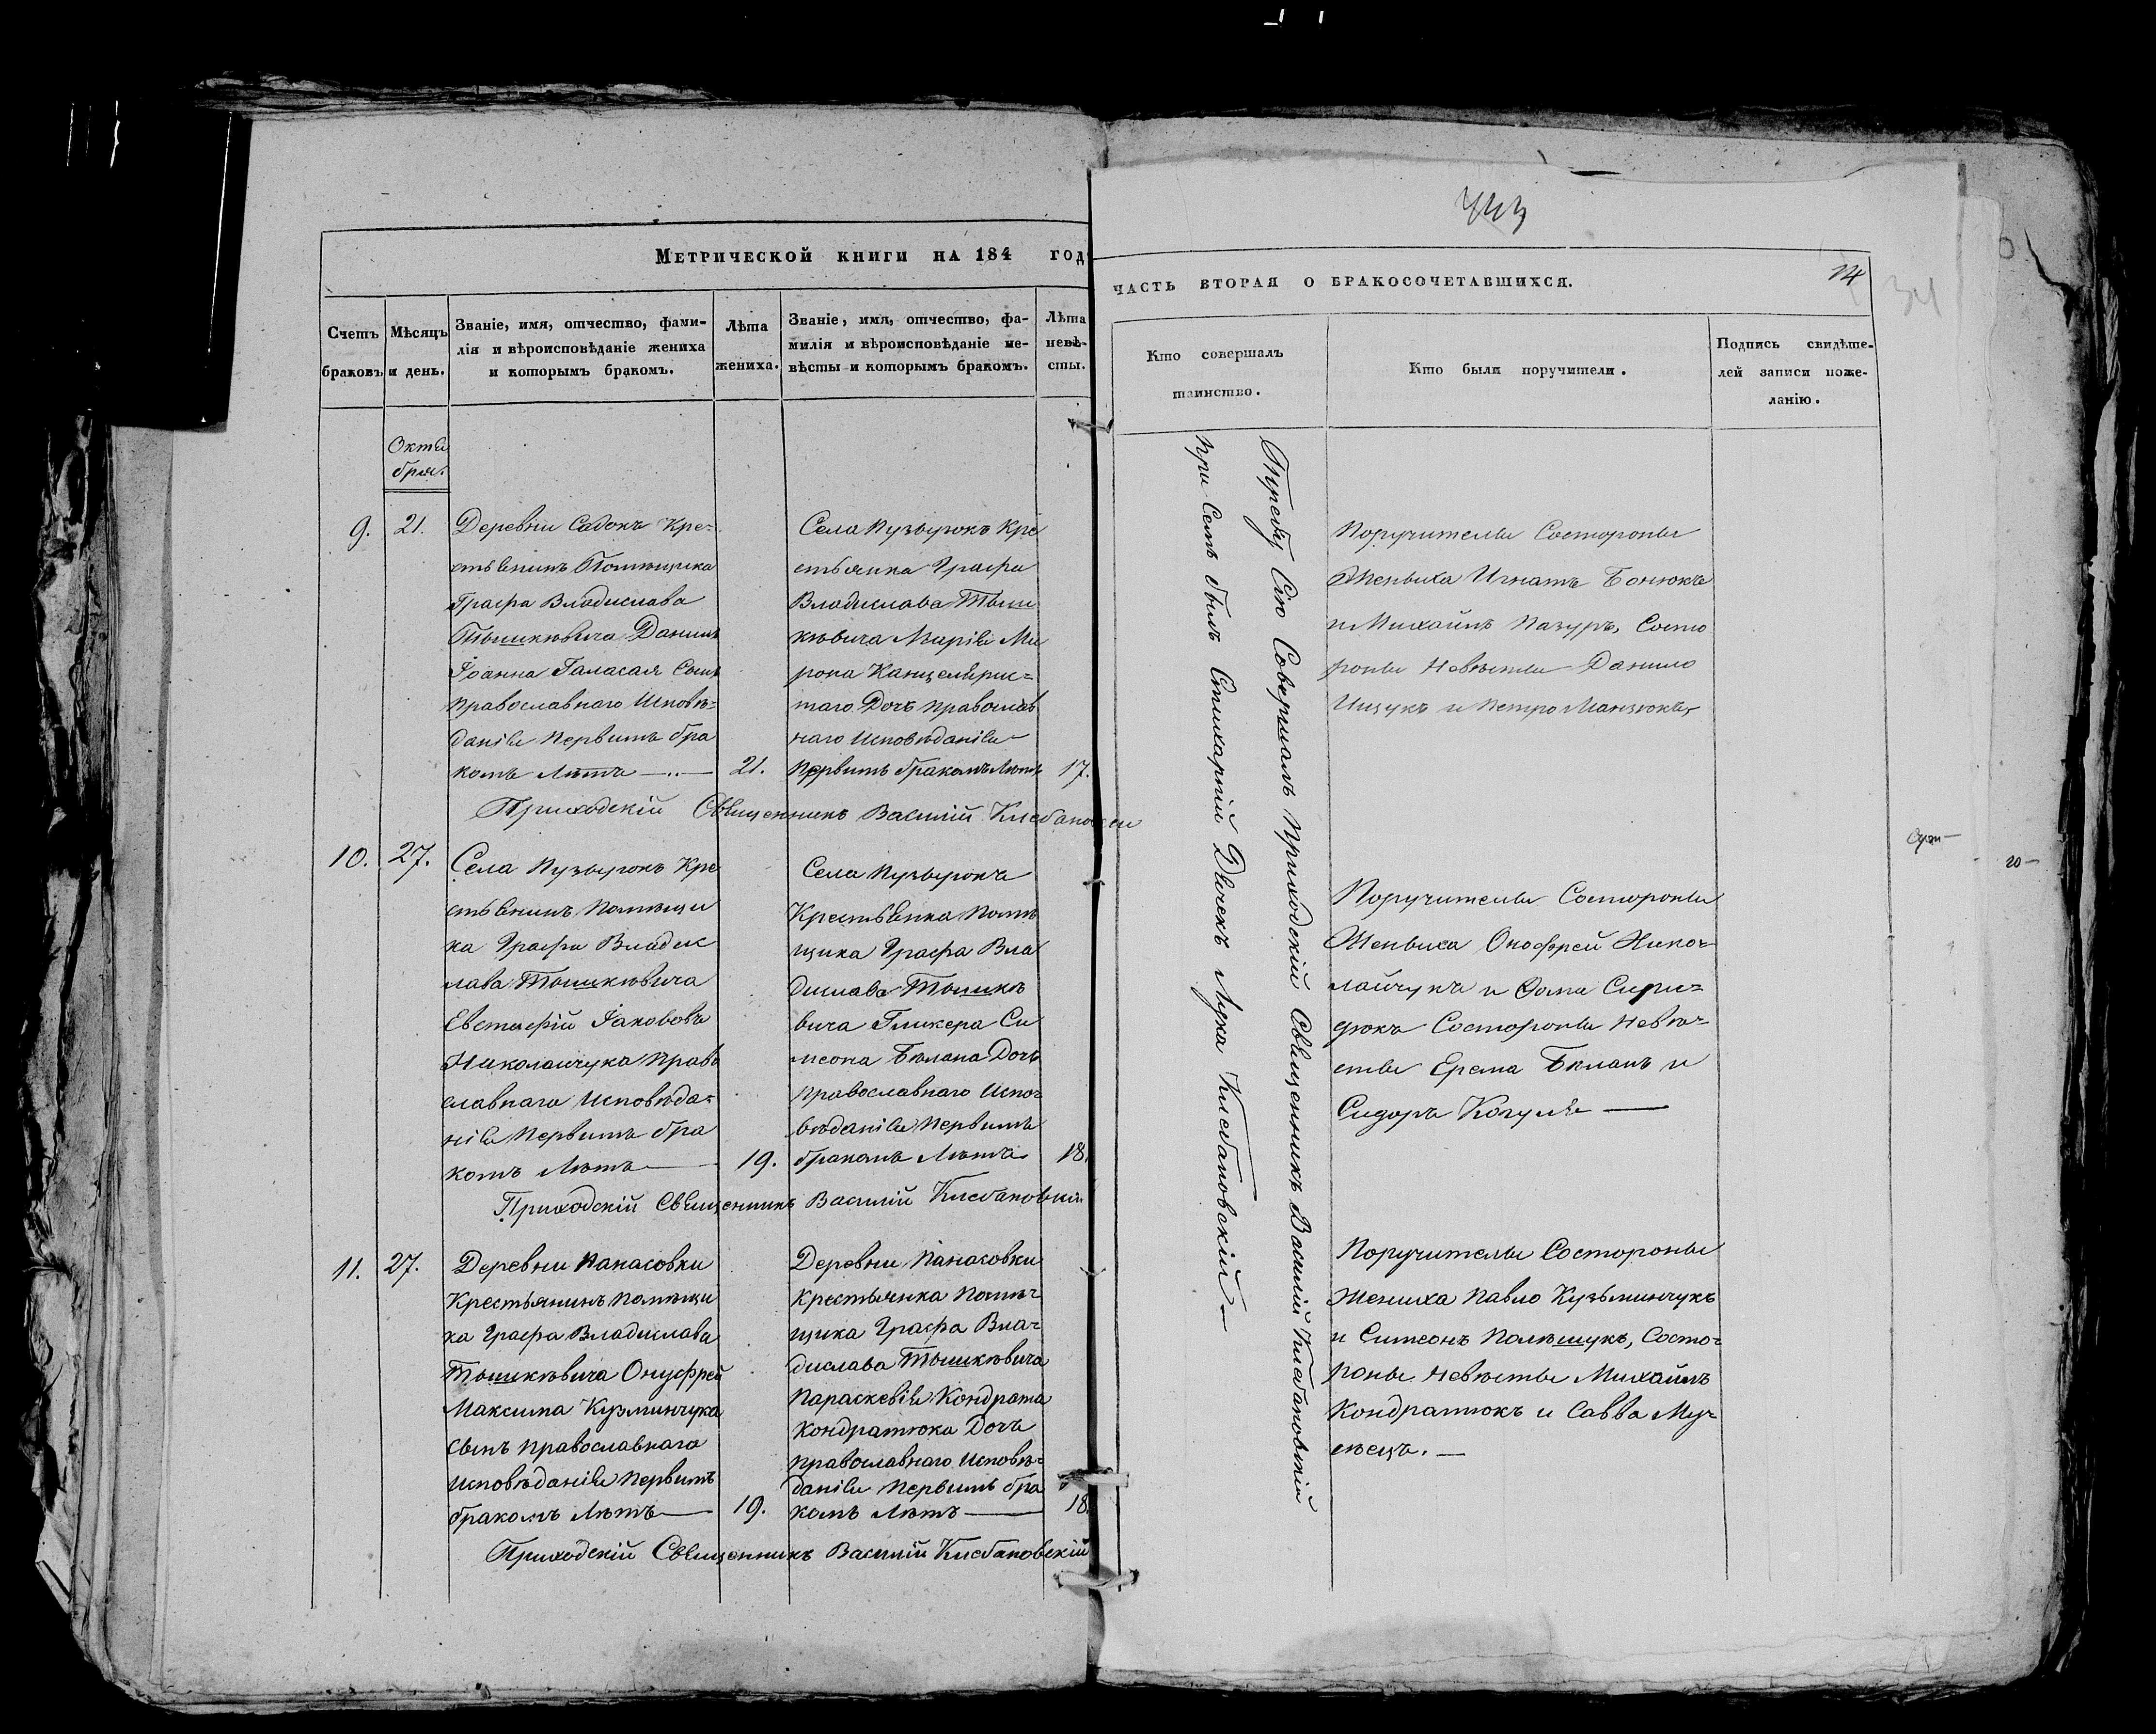 Метрической книги на 184 год
Счетъ браковъ
Мѣсяцъ и день.
Званіе, имя, отчество, фами-
лія и вѣроисповѣданіе жениха
и которымъ бракомъ.
Лѣта
жениха.
Званіе, имя, отчество, фа-
милія и вѣроисповѣданіе не-
вѣсты и которымъ бракомъ.
Лѣта
невѣ-
сты.
Октя
бря.
9.
21.
Деревни Садокъ Кре-
стьянинъ Помѣщика
Графа Владислава
Тышкѣвича Даніилъ
Іоанна Галасая Сынъ
Православнаго Исповѣ-
данія Первымъ бра
комъ Лѣтъ
21.
Села Пузырокъ Кре
стьянка Графа
Владислава Тыш
кѣвича Марія Ми
рона Канцеляри-
таго Дочь Православ
наго Исповѣданія
Первымъ бракомъ Лѣтъ
17.
Приходскій Священникъ Василій Клебановскій
10.
27.
Села Пузырокъ Кре
стьянинъ Помѣщи
ка Графа Владис
лава Тышкѣвича
Евстафій Іакововъ
Николайчука Право
славнаго Исповѣда-
нія Первымъ бра
комъ Лѣтъ
19.
Села Пузырокъ
Крестьянка Помѣ
щика Графа Вла
дислава Тышкѣ
вича Гликера Си
меона Бѣлана Дочь
Православнаго Испо-
вѣданія Первымъ
бракомъ Лѣтъ
18.
Приходскій Священникъ Василій Клебановскій
11.
27.
Деревни Панасовки
Крестьянинъ Помѣщи
ка Графа Владислава
Тышкѣвича Онуфрей
Максима Кузминчука
сынъ Православнаго
Исповѣданія Первымъ
бракомъ Лѣтъ
19.
Деревни Панасовки
Крестьянка Помѣ-
щика Графа Вла-
дислава Тышкѣвича
Параскевія Кондрата
Кондратюка Дочь
Православнаго Исповѣ-
данія Первымъ бра
комъ Лѣтъ
18.
Приходскій Священникъ Василій Клебановскій
часть вторая о бракосочетавшихся.
14
34
Кто совершалъ
таинство.
Кто были поручители.
Подпись свидѣте-
лей записи поже-
ланію.
Требу Сію Совершалъ Приходскій Священникъ Василій Клебановскій
при Семъ былъ Стихарній Дьячекъ Лука Клебановскій
Поручители Состороны
Жениха Игнатъ Бонюкъ
и Михаилъ Мазуръ, Состо
роны Невѣсты Данило
Ищукъ и Петро Манзюкъ
Поручители Состороны
Жениха Онофрей Нико-
лайчукъ и Ѳома Сири-
дюкъ Состороны Невѣ-
сты Ерема Бѣланъ и
Сидоръ Когуля
Поручители Состороны
Жениха Павло Кузьминчукъ
и Симеонъ Полѣшукъ, Состо-
роны Невѣсты Михаилъ
Кондратюкъ и Савва